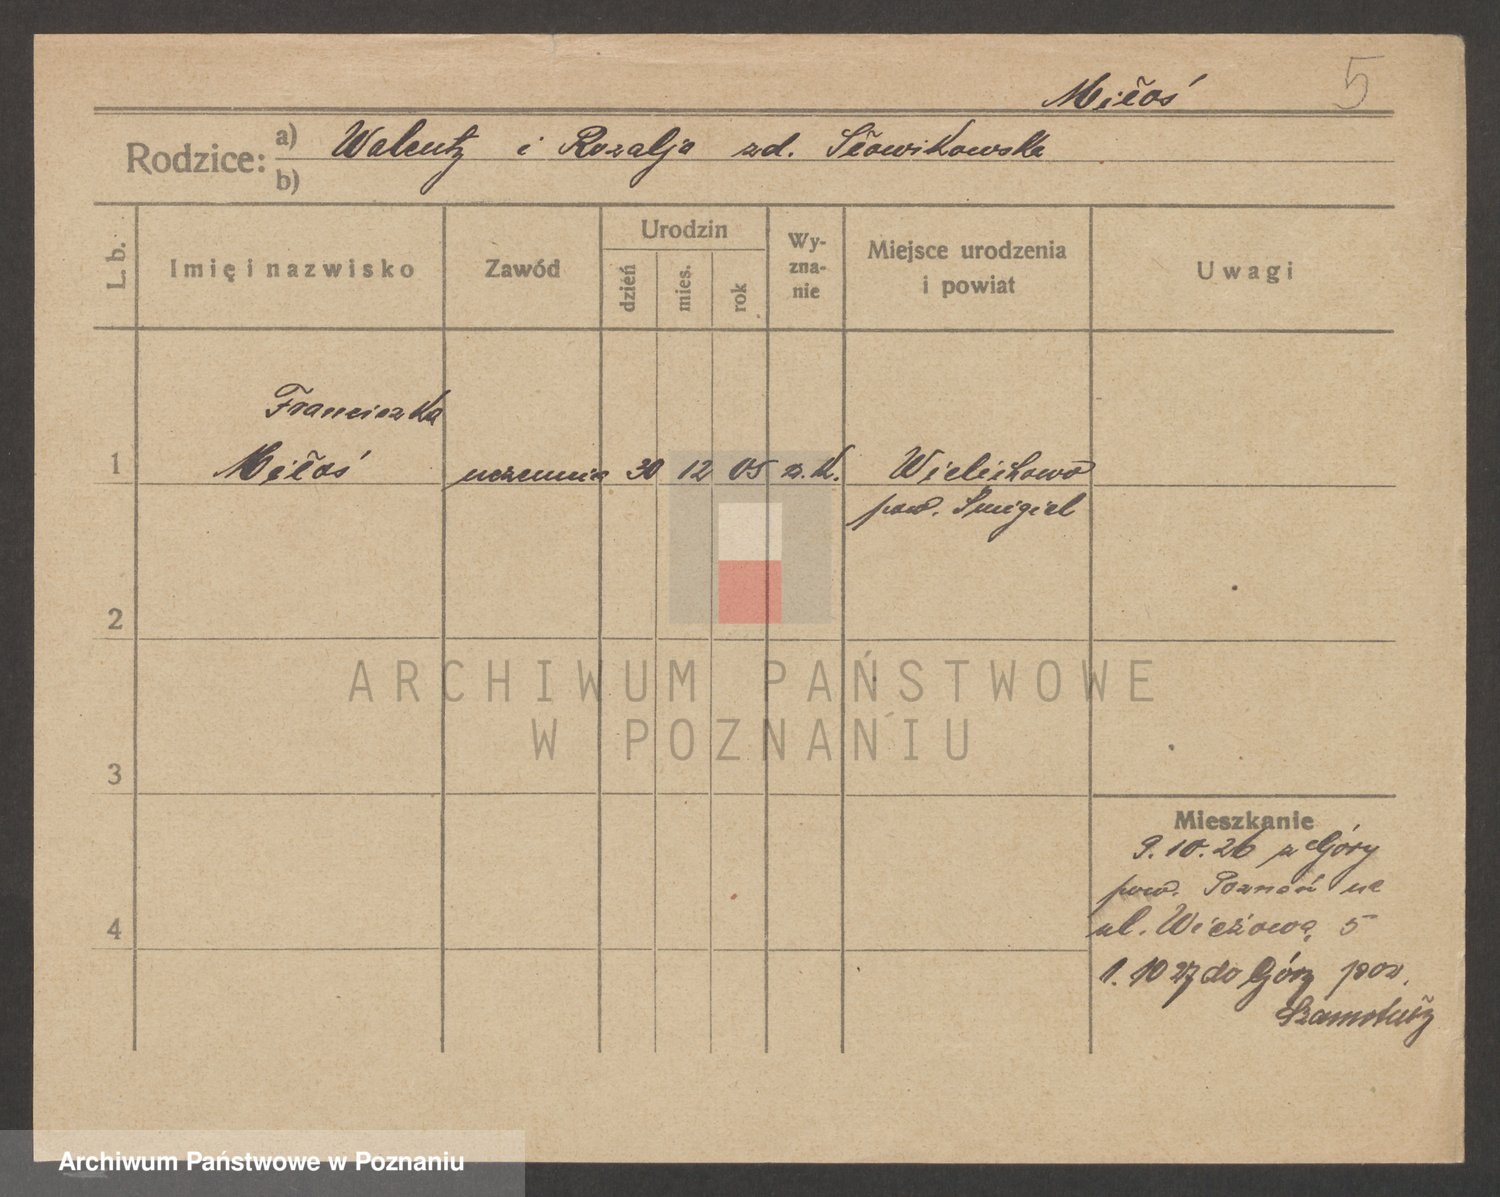 5
Miłoś
Rodzice: a) Walenty i Rozalja zd. Słowikowska
b)
L. b.
Imię i nazwisko
Zawód
Urodzin
dzień
mies.
rok
Wy-
zna-
nie
Miejsce urodzenia
i powiat
Uwagi
Franciszka
1 Miłoś uczennica 30 12 05 rz. k. Wielichowo
pow. Śmigiel
2
ARCHIWUM PAŃSTWOWE
W POZNANIU
3
Mieszkanie
9.10.26 z Góry
pow. Poznań na
ul. Wieżową 5
4
1. 10 27 do Góry pow.
Szamotuły
Archiwum Państwowe w Poznaniu